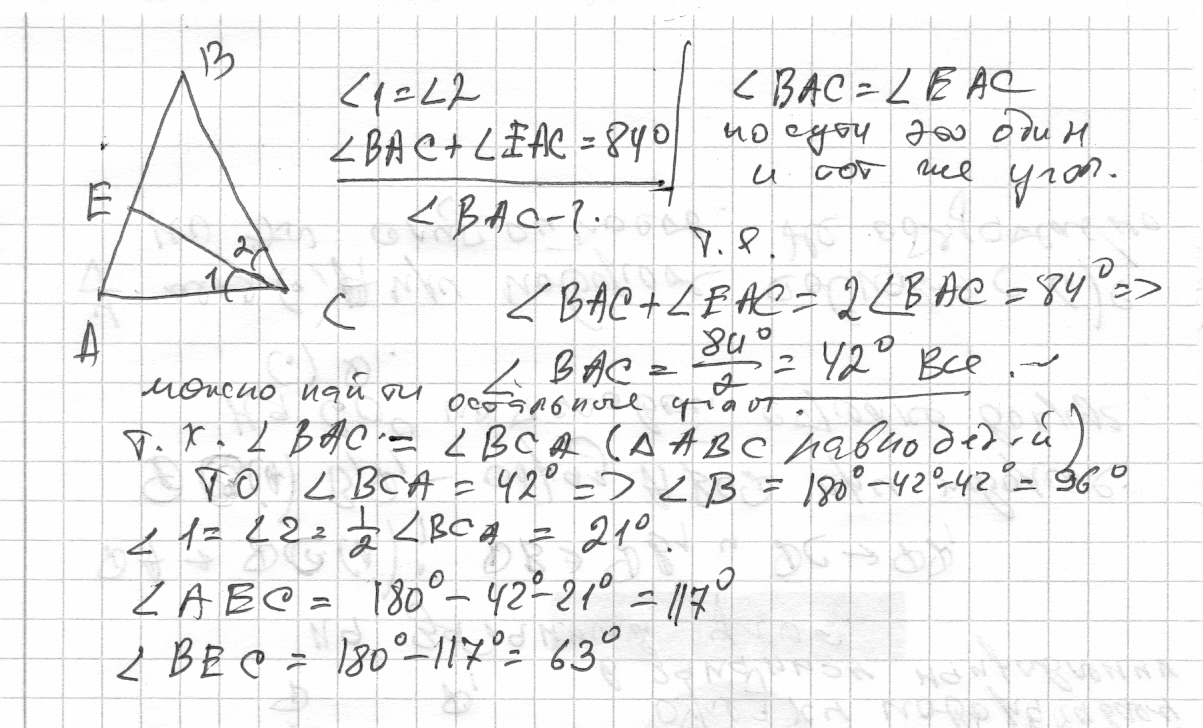 B
E
A
C
1
2
∠1=∠2
∠BAC+∠EAC=84°
∠BAC-?.
∠BAC=∠EAC
по сути это один
и тот же угол.
т.е.
∠BAC+∠EAC=2∠BAC=84°=>
∠BAC=84°/2=42° Все.
можно найти остальные углы.
т.к. ∠BAC=∠BCA (△ABC равнобед-й)
то ∠BCA=42°=>∠B=180°-42°-42°=96°
∠1=∠2=1/2∠BCA=21°.
∠AEC=180°-42°-21°=117°
∠BEC=180°-117°=63°